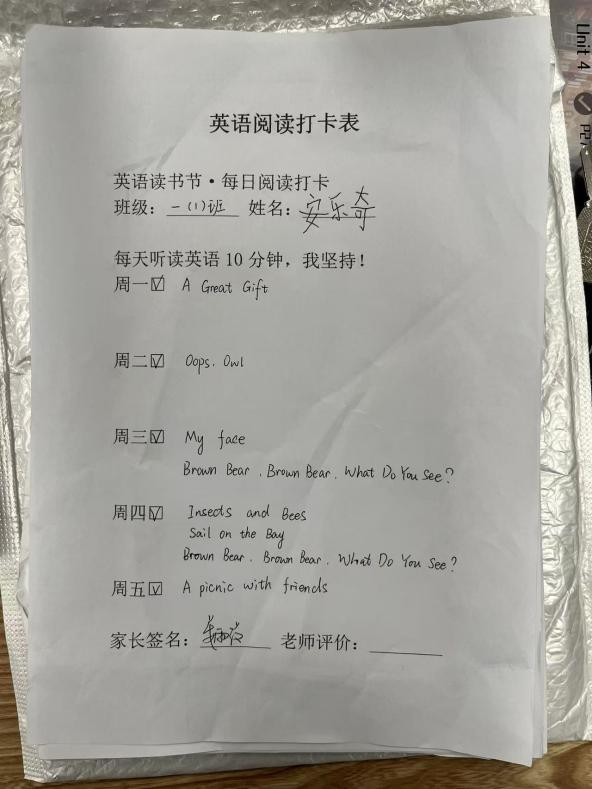 英语阅读打卡表
英语读书节·每日阅读打卡
班级：一(1)班 姓名：安乐奇
每天听读英语 10 分钟，我坚持！
周一☑ A Great Gift
周二☑ Oops, Owl
周三☑ My face
Brown Bear, Brown Bear, What Do You See?
周四☑ Insects and Bees
Sail on the Bay
Brown Bear, Brown Bear, What Do You See?
周五☑ A picnic with friends
家长签名： 老师评价：
Unit 4